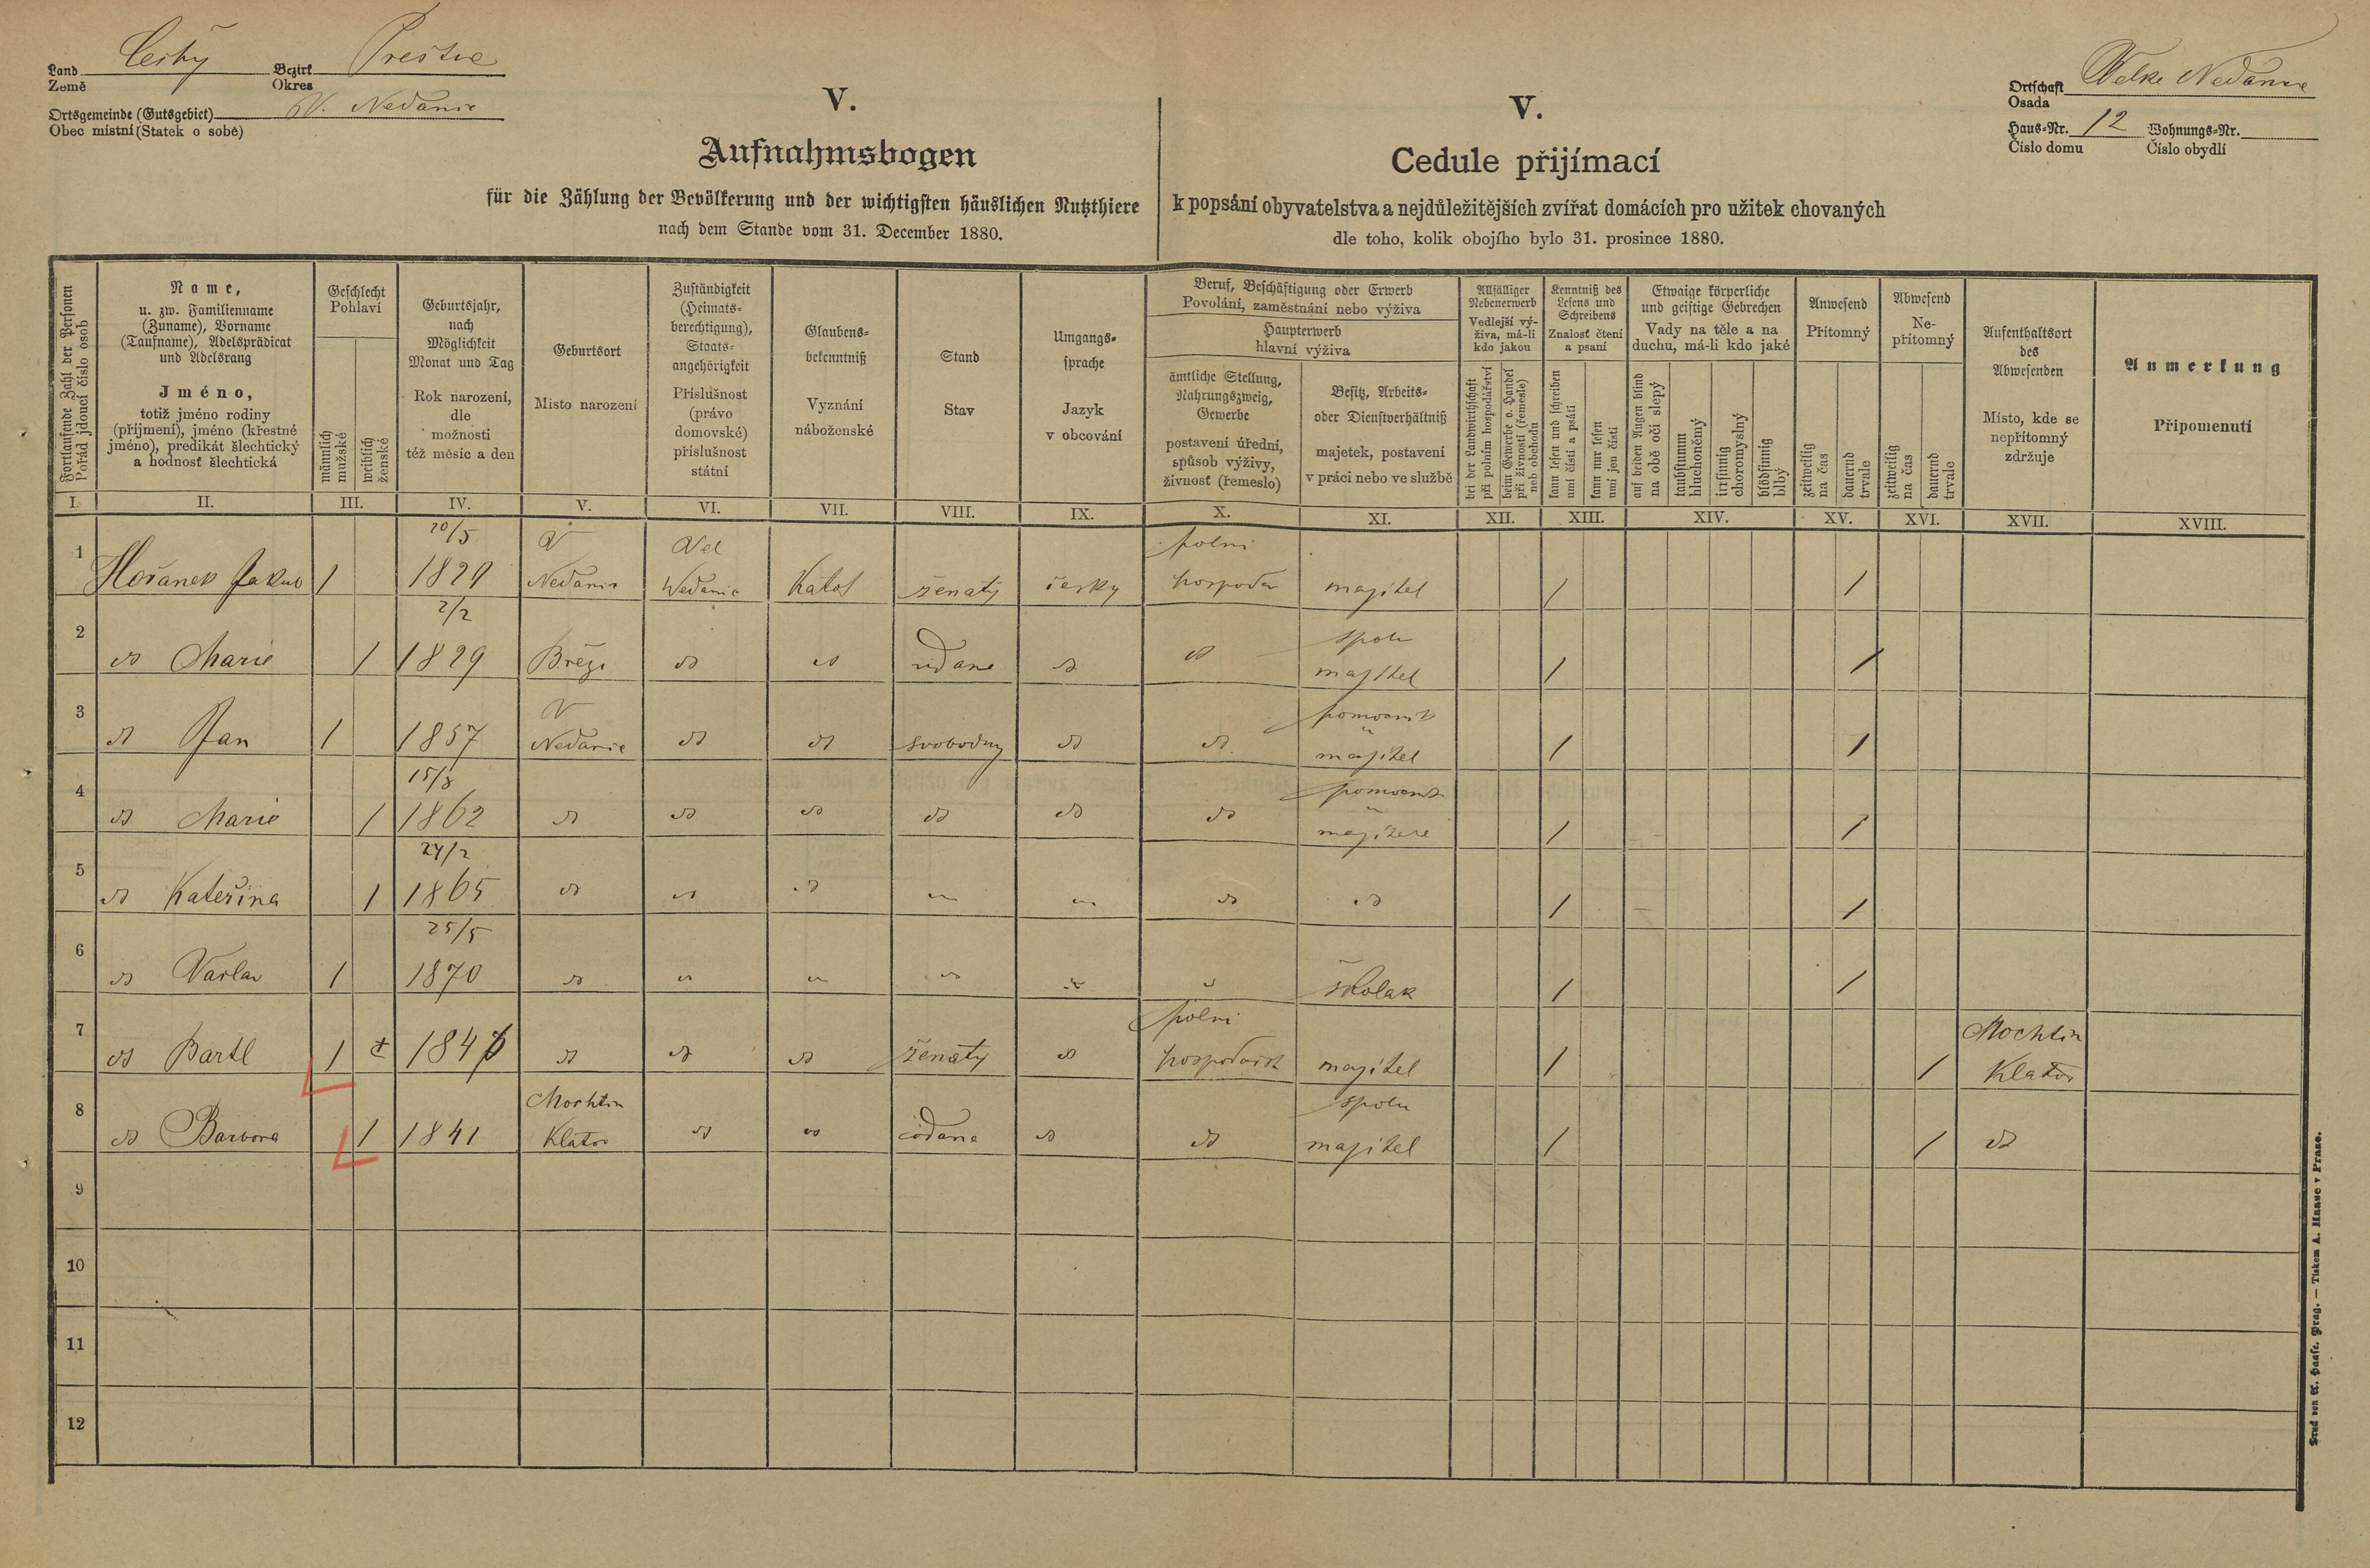 Land Země Češky Bezirk Okres Prestice
Ortsgemeinde (Gutsgebiet) Obec místní (Statek o sobě) W. Nedanic
Ortschaft Osada Welke Nedanice
Haus-Nr. Číslo domu 12 Wohnungs-Nr. Číslo obydlí
V.
Aufnahmsbogen
für die Zählung der Bevölkerung und der wichtigsten häuslichen Nutzthiere
nach dem Stande vom 31. December 1880.
V.
Cedule přijímací
k popsání obyvatelstva a nejdůležitějších zvířat domácích pro užitek chovaných
dle toho, kolik obojího bylo 31. prosince 1880.
Fortlaufende Zahl der Personen
Pořád jdoucí číslo osob
Name,
u. zw. Familienname
(Zuname), Vorname
(Taufname), Adelsprädicat
und Adelsrang
Jméno,
totiž jméno rodiny
(příjmení), jméno (křestné
jméno), predikát šlechtický
a hodnosť šlechtická
Geschlecht
Pohlaví
männlich
mužské
weiblich
ženské
Geburtsjahr,
nach
Möglichkeit
Monat und Tag
Rok narození,
dle
možnosti
též měsíc a den
Geburtsort
Místo narození
Zuständigkeit
(Heimats-
berechtigung),
Staats-
angehörigkeit
Příslušnost
(právo
domovské)
příslušnost
státní
Glaubens-
bekenntniß
Vyznání
náboženské
Stand
Stav
Umgangs-
sprache
Jazyk
v obcování
Beruf, Beschäftigung oder Erwerb
Povolání, zaměstnání nebo výživa
Haupterwerb
hlavní výživa
ämtliche Stellung,
Nahrungszweig,
Gewerbe
postavení úřední,
spůsob výživy,
živnosť (řemeslo)
Besitz, Arbeits-
oder Dienstverhältniß
majetek, postavení
v práci nebo ve službě
Allfälliger
Nebenerwerb
Vedlejší vý-
živa, má-li
kdo jakou
bei der Landwirthschaft
při polním hospodářství
beim Gewerbe o. Handel
při živnosti (řemesle)
neb obchodu
Kenntniß des
Lesens und
Schreibens
Znalosť čtení
a psaní
kann lesen und schreiben
umí čísti a psáti
kann nur lesen
umí jen čísti
Etwaige körperliche
und geistige Gebrechen
Vady na těle a na
duchu, má-li kdo jaké
auf beiden Augen blind
na obě oči slepý
taubstumm
hluchoněmý
irrsinnig
choromyslný
blödsinnig
blbý
Anwesend
Přítomný
zeitweilig
na čas
dauernd
trvale
Abwesend
Ne-
přítomný
zeitweilig
na čas
dauernd
trvale
Aufenthaltsort
des
Abwesenden
Místo, kde se
nepřítomný
zdržuje
Anmerkung
Připomenutí
I. II. III. IV. V. VI. VII. VIII. IX. X. XI. XII. XIII. XIV. XV. XVI. XVII. XVIII.
20/5 V Vel polni
1 Hořanek Jakub 1 Nedanic Nedanic Katol ženatý česky hospodar majitel / /
2/2 spolu
2 do Marie 1 1829 Březi do do vdana do do majitel / /
V pomocnik
3 do Jan 1 1857 Nedanic do do svobodny do do majitel / /
15/8 pomocnik
4 do Marie 1 1862 do do do do do do majitele / /
24/2
5 do Kateřina 1 1865 do do do " " do do / /
25/5
6 do Vaclav 1 1870 do " " " " " školak / /
polni Mochtin
7 do Bartl 1 do do do ženatý do hospodařst majitel / / Klatov
Mochtin spolu
8 do Barbora 1 1841 Klatov do do vdana do do majitel / / do
9
10
11
12
Druck von A. Haase, Prag. — Tiskem A. Haase v Praze.